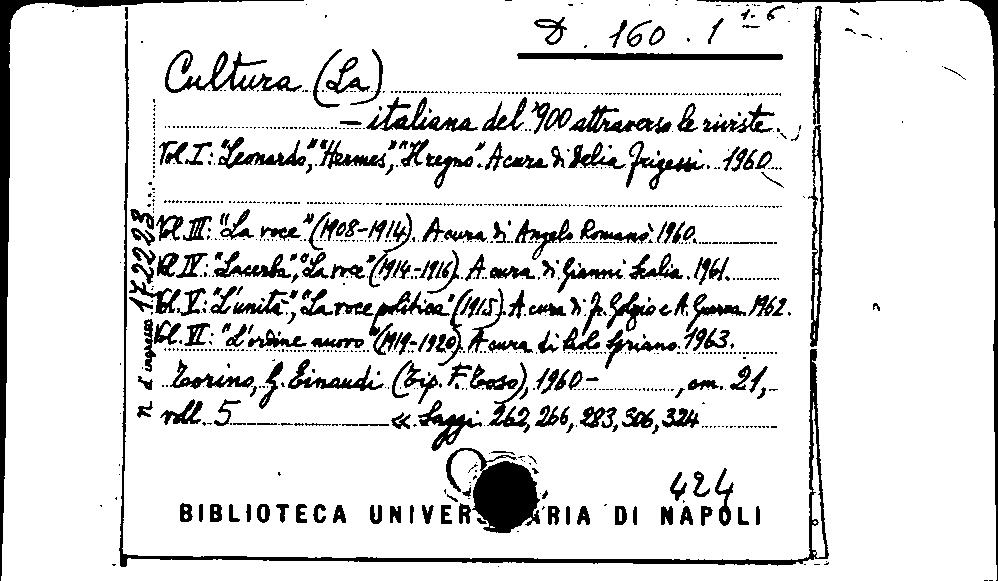 D. 160. 1 1-6
Cultura (La)
— italiana del '900 attraverso le riviste.
Vol. I: "Leonardo", "Hermes", "Il regno". A cura di Delia Frigessi. 1960
Vol. III: "La voce" (1908-1914). A cura di Angelo Romanò. 1960.
Vol. IV: "Lacerba", "La voce" (1914-1916). A cura di Gianni Scalia. 1961.
Vol. V: "L'unità", "La voce politica" (1915). A cura di F. Golzio e A. Guerra. 1962.
Vol. VI: "L'ordine nuovo" (1919-1920). A cura di Paolo Spriano. 1963.
Torino, G. Einaudi (Tip. F. Toso), 1960- , cm. 21,
voll. 5 « Saggi. 262, 266, 283, 306, 324
n. d'ingresso 172223
424
BIBLIOTECA UNIVER ARIA DI NAPOLI